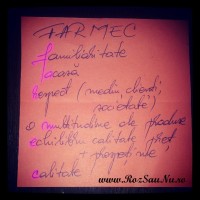 FARMEC
familiaritate
acasă
respect (mediu, clienți,
societate)
o multitudine de produse
echilibru calitate preț
+ promptitudine
calitate
www.RozSauNu.ro